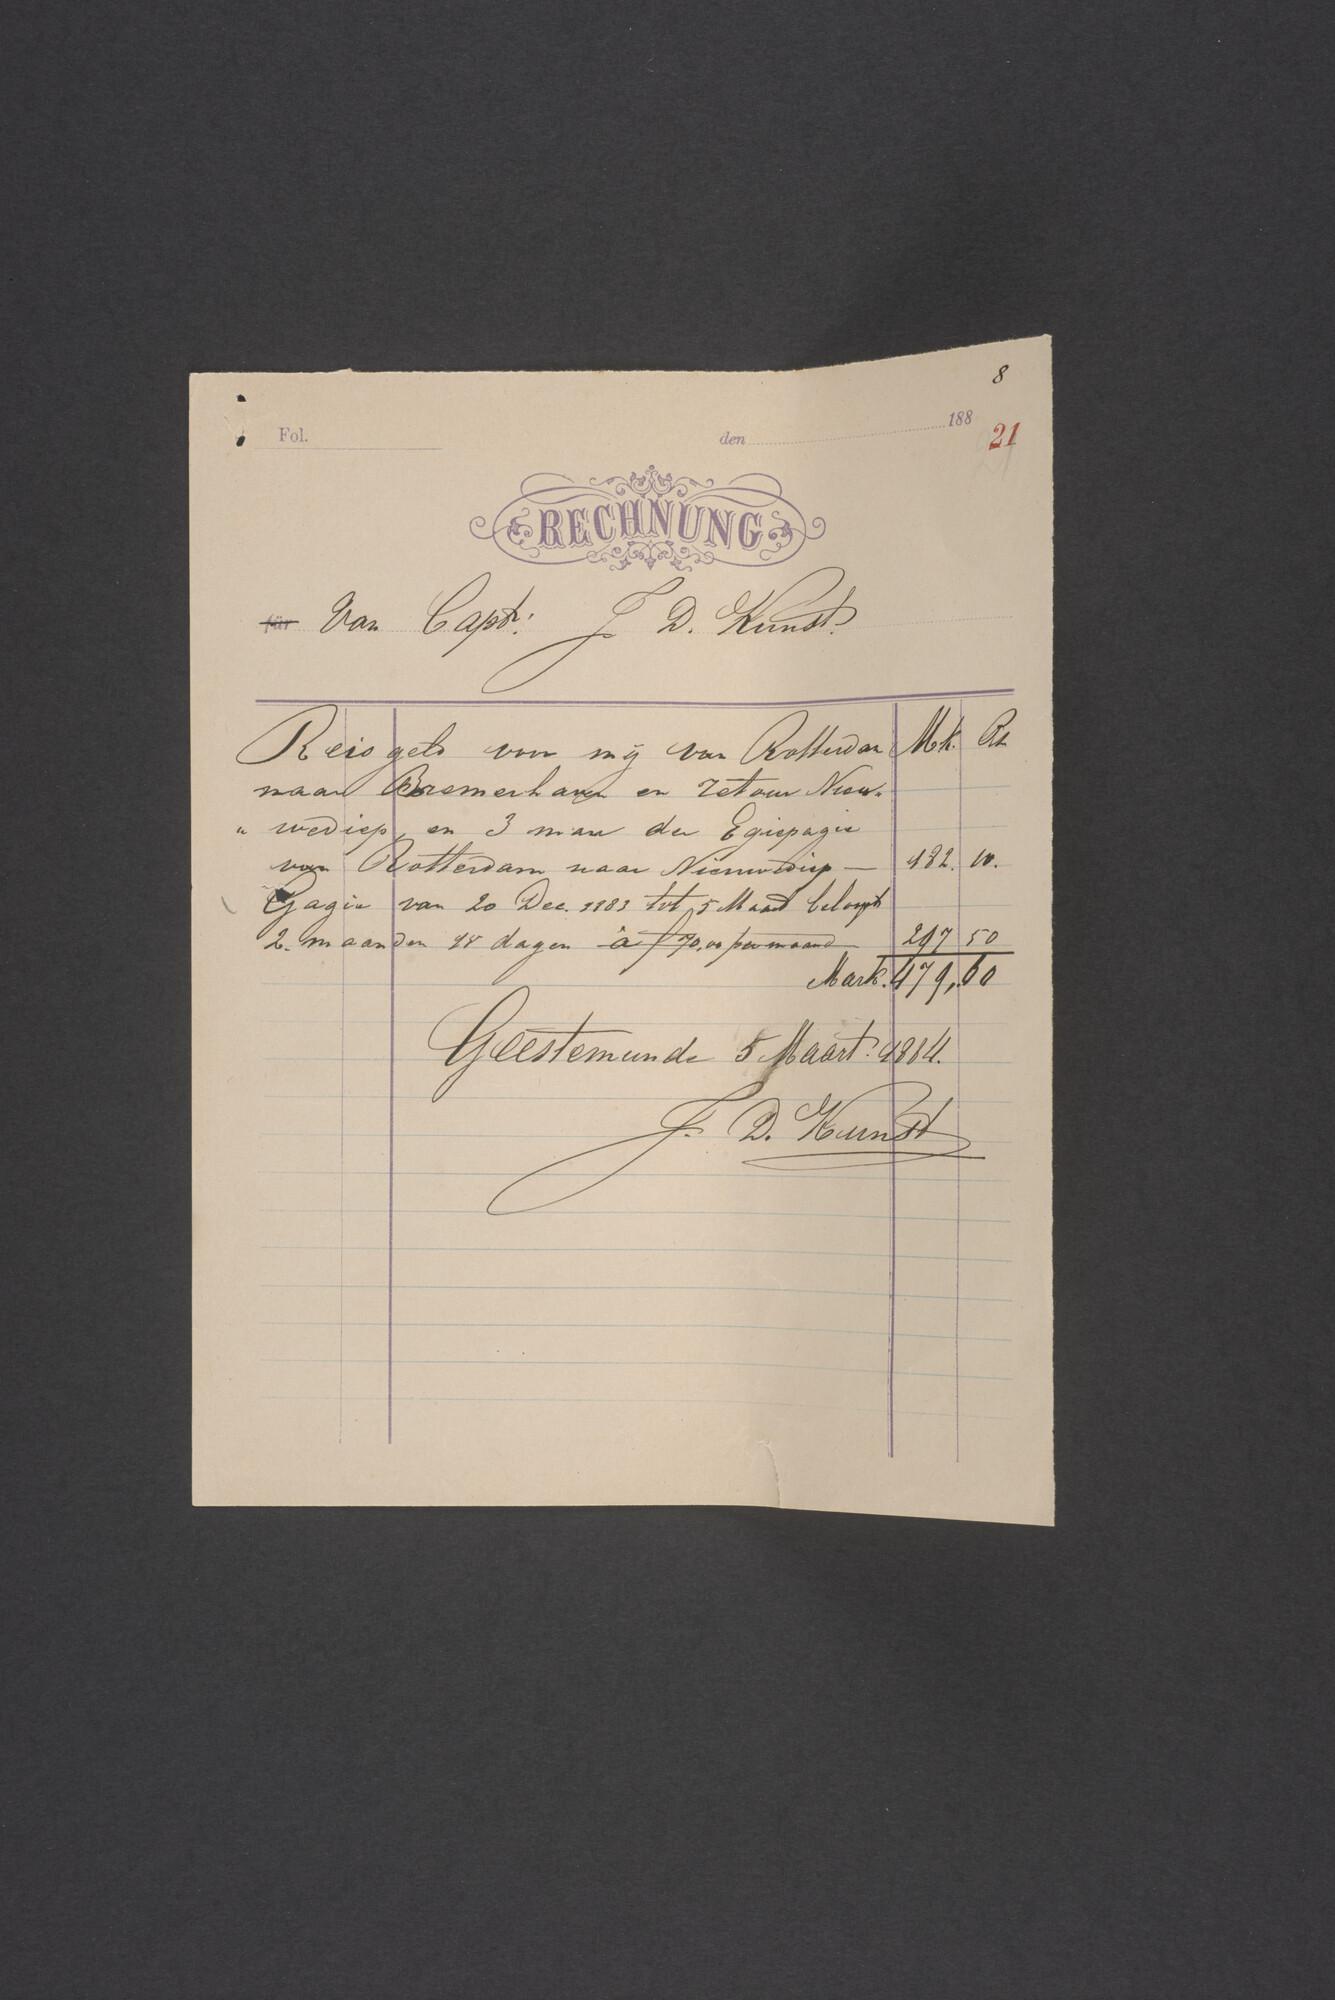 8
Fol. den 188 21
RECHNUNG
für Van Capt: J D. Kunst.
Reisgeld voor mij van Rotterdam Mk.
naar Bremerhaven en retour Nieu„
„ wediep, en 3 man der Egiepagie
van Rotterdam naar Nieuwediep — 182. 10.
Gagie van 20 Dec. 1883 tot 5 Maart beloopt
2. maanden 18 dagen à f 70,00 per maand 297 50
Mark. 479,60
Geestemunde 5 Maart. 1884.
J. D. Kunst